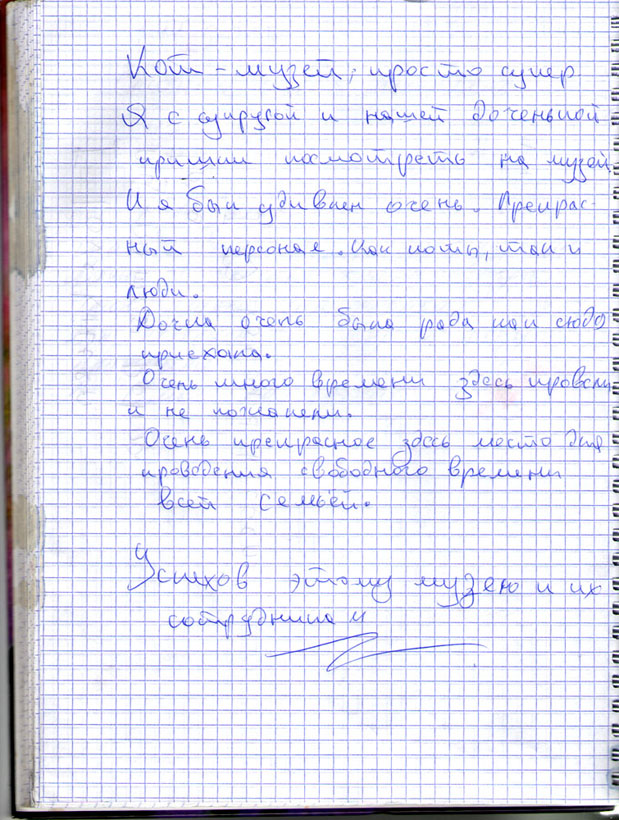 Кот-музей, просто супер
Я с супругой и нашей доченькой
пришли посмотреть на музей
И я был удивлен очень. Прекрас-
ный персонал. Как коты, так и
люди.
Дочка очень была рада как сюда
приехала.
Очень много времени здесь провели
и не пожалели.
Очень прекрасное здесь место для
проведения свободного времени
всей семьёй.
Успехов этому музею и их
сотрудникам